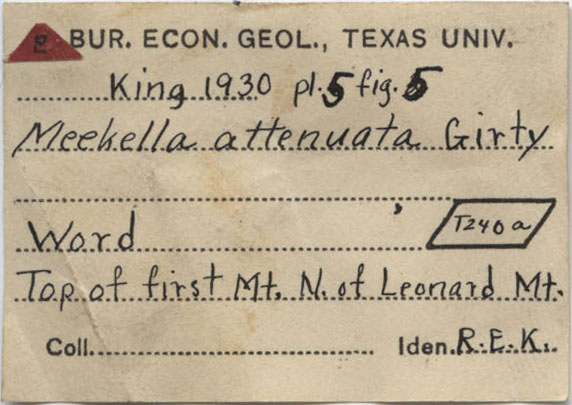 BUR. ECON. GEOL., TEXAS UNIV.
King 1930 pl. 5 fig. 5
Meekella attenuata Girty
Word
T240a
Top of first Mt. N. of Leonard Mt.
Coll. Iden. R.E.K.